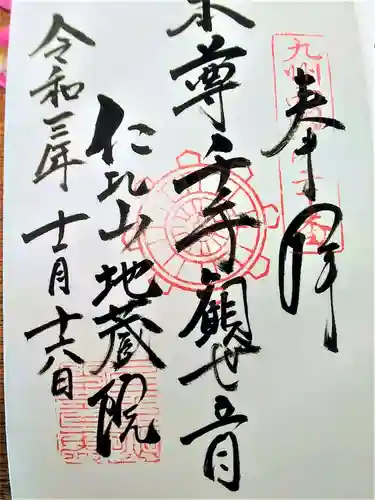 奉拝
本尊千手観世音
仁比山地蔵院
令和三年
十一月十六日